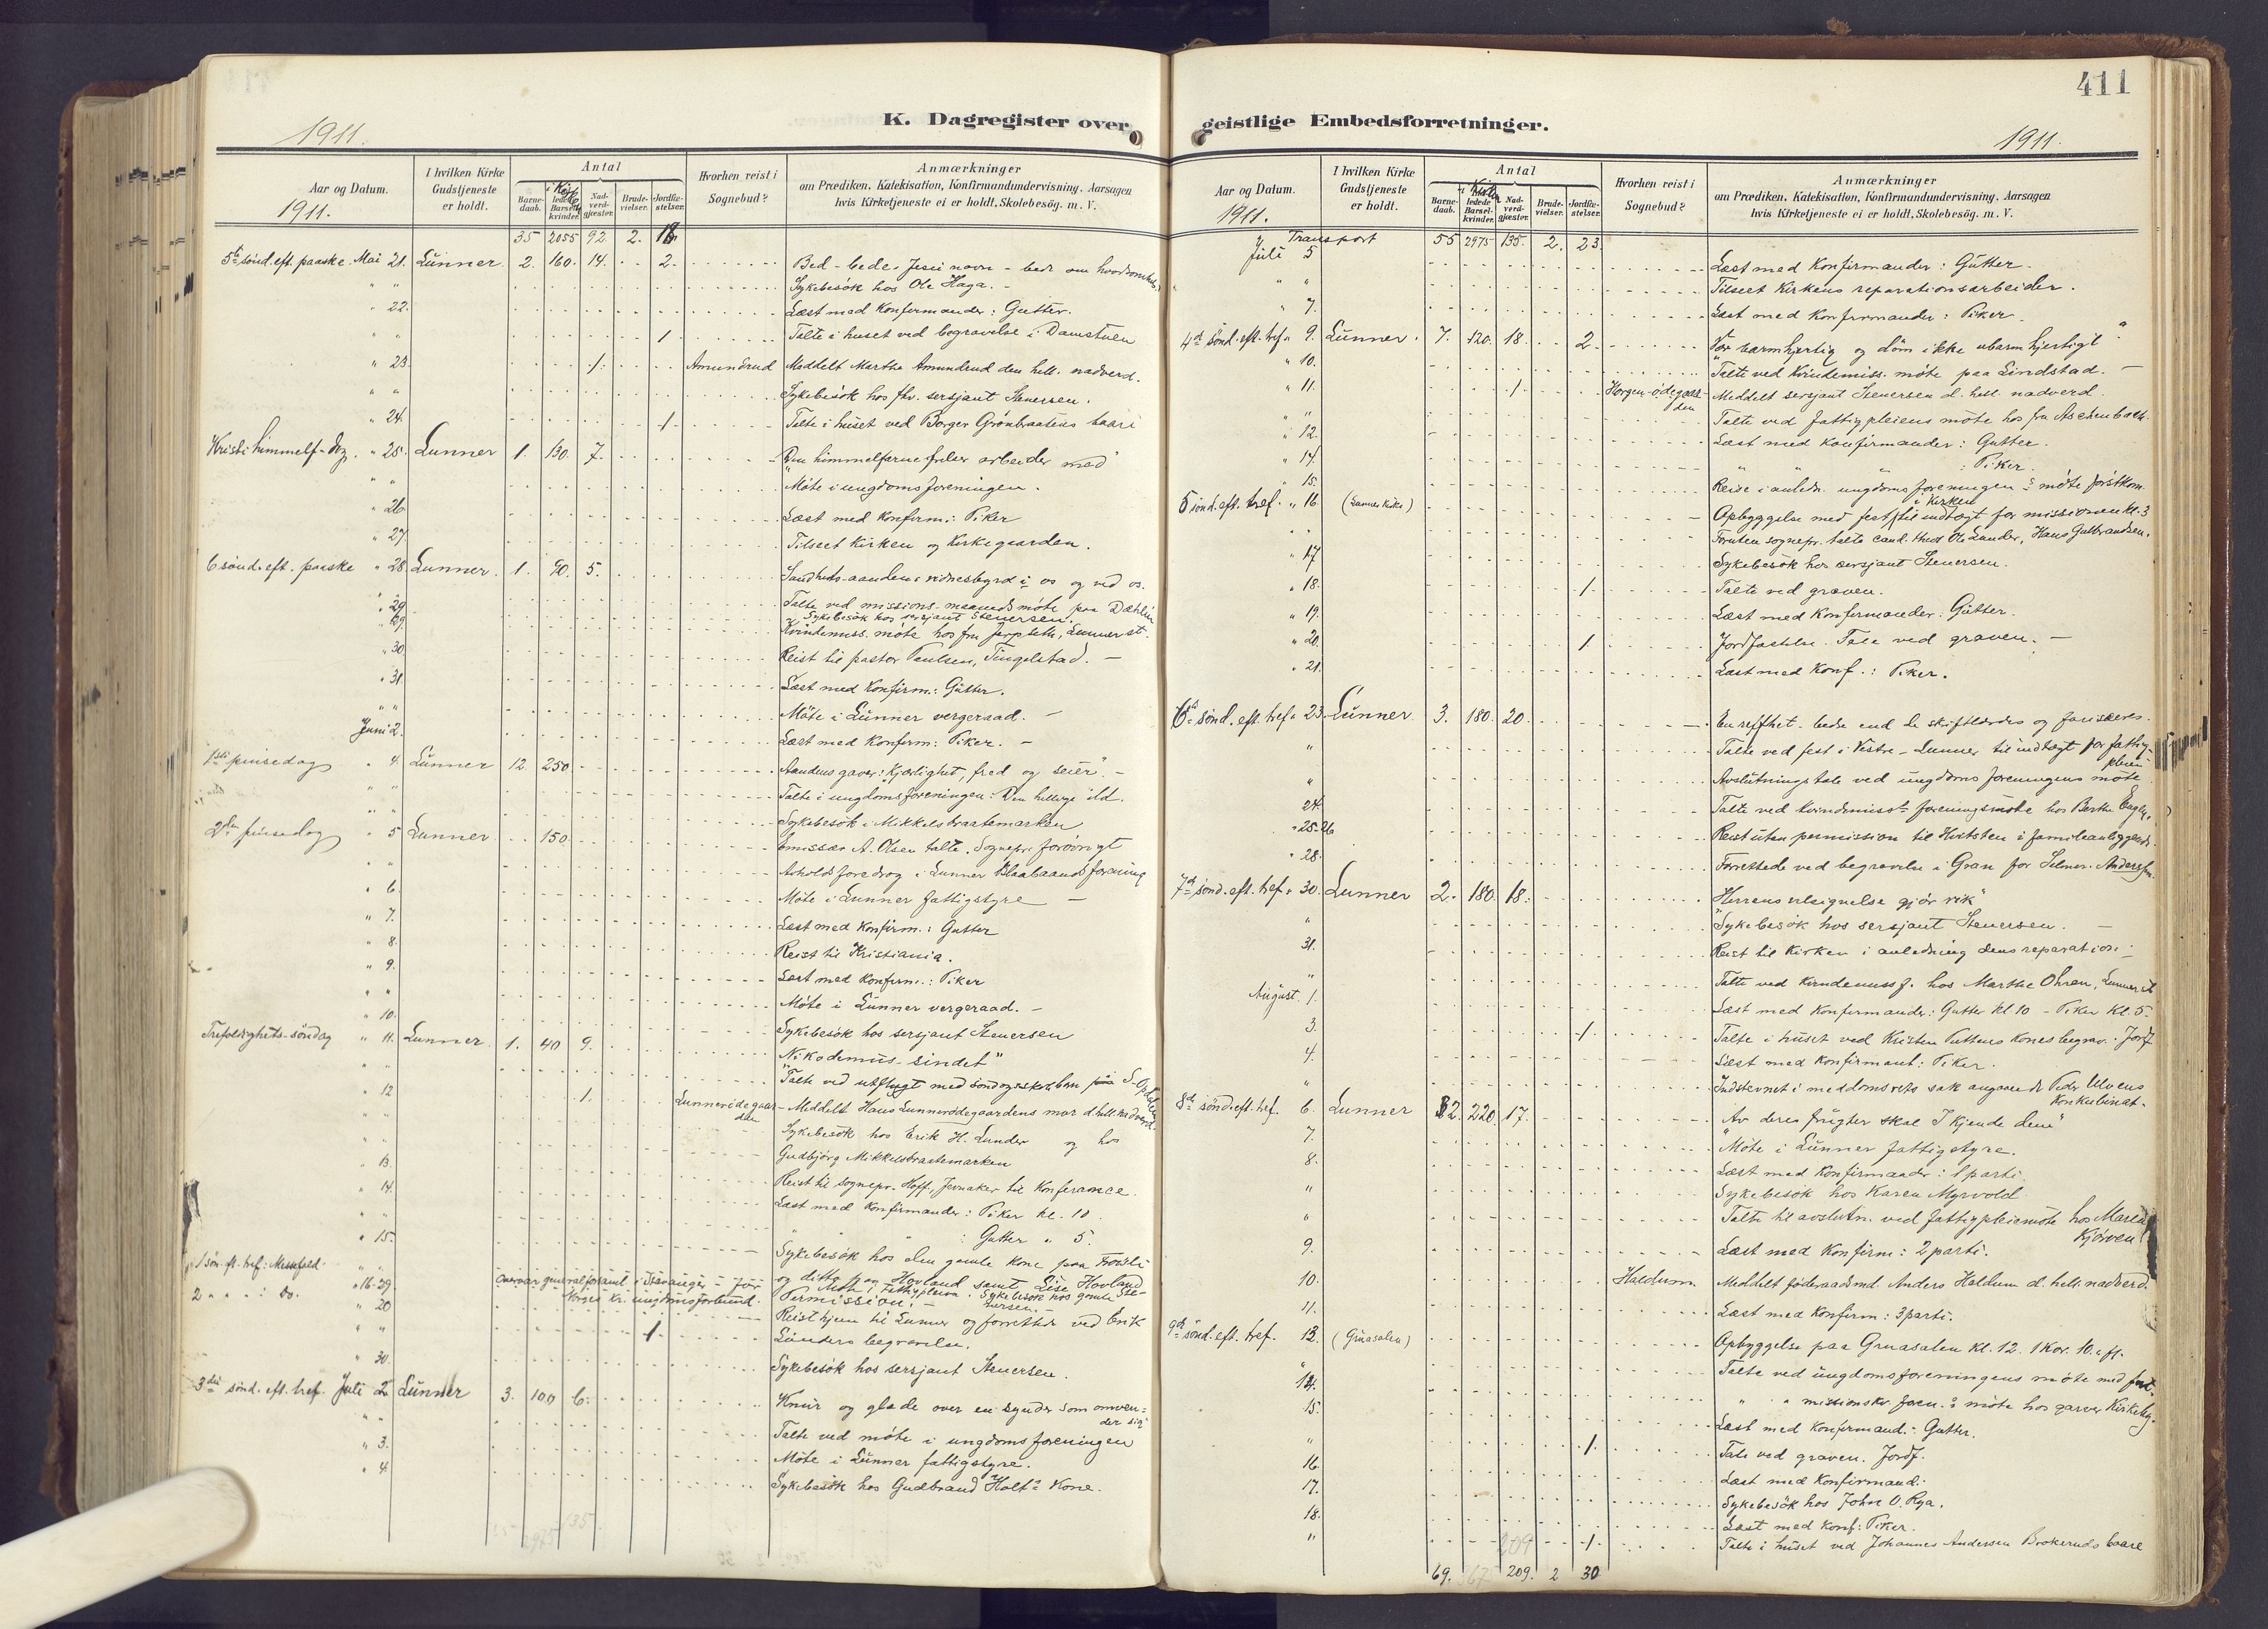 411
K. Dagregister over geistlige Embedsforretninger.
1911.
Aar og Datum.
1911.
I hvilken Kirke Gudstjeneste er holdt.
Antal
Barnedaab.
Nadverdgjæster.
Brudevielser.
Jordfæstelser.
Hvorhen reist i Sognebud?
Anmærkninger
om Prædiken, Katekisation, Konfirmandundervisning, Aarsagen
hvis Kirketjeneste ei er holdt, Skolebesøg. m. V.
35 2055 92 2. 18
5te sönd. eft. paaske. Mai 21. Lunner 2. 160. 14. 2. Bed - bede i Jesu navn - bede om
" " Sykebesök hos Ole Haga. -
" 22. Læst med Konfirmander: Gutter.
" " 1 Talte i huset ved begravelse i Damstuen
" 23. 1. Amundrud Meddelt Marthe Amundrud den hell. nadverd.
" " Sykebesök hos fhv. sersjant Stenersen.
" 24. 1. Talte i huset ved Borger Grönbraatens baare
Kristi himmelf. dag. " 25. Lunner 1. 130. 7. Den himmelfarne frelser arbeider med"
" " Möte i ungdomsforeningen.
" 26. Læst med Konfirm: Piker
" 27. Tilseet Kirken og Kirkegaarden.
6 sönd. eft. paaske " 28. Lunner. 1. 90. 5. Sandhets-aandens vidnesbyrd i os og ved os.
" 29. Talte ved missions-maanedsmöte paa Dæhlin
Sykebesök hos sersjant Stenersen.
" 29. Kvindemiss. möte hos fru Jerpseth, Lunner st.
" 30 Reist til pastor Paulsen, Tingelstad. -
" 31. Læst med Konfirm.: Gutter.
" " Möte i Lunner vergeraad. -
Juni 2. Læst med Konfirm: Piker. -
1ste pinsedag " 4. Lunner 12. 250 Aandens gaver: "Kjærlighet, fred og seier". -
" " Talte i ungdomsforeningen: Den hellige ild.
" " Sykebesök i Mikkelsbraatemarken
2den pinsedag " 5 Lunner. 150. Emissær A. Olsen talte. Sognepr. forövrigt
" " Avholdsforedrag i Lunner Blaabaandsforening
" 6. Möte i Lunner fattigstyre -
" 7. Læst med Konfirm.: Gutter
" 8. Reist til Kristiania.
" 9. Læst med Konfirm.: Piker
" " Möte i Lunner vergeraad. -
" 10. Sykebesök hos sersjant Stenersen
Trefoldighets-söndag " 11. Lunner. 1. 40 9. "Nikodemus-sindet"
" " Talte ved utflugt med söndagsskolebarn paa S. Opdalen
" 12 1. Lunnerödegaarden Meddelt Hans Lunnerödegaardens mor d. hell. nadverd.
" " Sykebesök hos Erik H. Lunder og hos
Gudbjörg Mikkelsbraatemarken
" 13. Reist til sognepr. Hoff, Jevnaker til Konferance.
" 14. Læst med Konfirmander: Piker kl. 10.
" " " " : Gutter " 5.
" 15. Sykebesök hos den gamle kone paa
1 sön. eft. tref: Messefald. og ditto paa Hovland samt Lise Hovland
Möte i fattigpleien. Sykebesök hos gamle Stenersen. -
2 " " " : Do. " 16-29. Overvar generalforsaml. i Stavanger - for Norges kr. ungdomsforbund. Permission. -
" 20 Reist hjem til Lunner og forrettede ved Erik
" " 1. Lunders begravelse.
" 30. Sykebesök hos sersjant Stenersen.
3die sönd. eft. tref. Juli 2. Lunner 3. 100 6. Knur og glæde over en synder som omvender sig
" " Talte ved möte i ungdomsforeningen
" 3. Möte i Lunner fattigstyre.
" 4. Sykebesök hos Gudbrand Holts kone.
1911.
Aar og Datum.
1911.
I hvilken Kirke Gudstjeneste er holdt.
Antal
Barnedaab.
Nadverdgjæster.
Brudevielser.
Jordfæstelser.
Hvorhen reist i Sognebud?
Anmærkninger
om Prædiken, Katekisation, Konfirmandundervisning, Aarsagen
hvis Kirketjeneste ei er holdt, Skolebesøg. m. V.
Transport 55 2975 135. 2. 23.
Juli 5 Læst med Konfirmander: Gutter.
" " Tilseet Kirkens reparationsarbeider.
" 7. Læst med Konfirmander: Piker.
4de sönd. eft. tref " 9. Lunner. 7. 120. 18. 2. Vær barmhjertig og döm ikke ubarmhjertigt"
" 10. Talte ved Kvindemiss. möte paa Lindstad. -
" 11. 1. Horgen-ödegaarden Meddelt sersjant Stenersen d. hell. nadverd.
" " Talte ved fattigpleiens möte hos fru Aschenbach.
" 12. Læst med Konfirmander: Gutter.
" 14. " " " : Piker.
" 15. Reise i anledn. ungdomsforeningens möte förstkom.
5 sönd. eft. tref. " 16. (Lunner Kirke) Opbyggelse med fest i Kirken til indtægt for missionen kl. 3
" " Foruten sognepr. talte cand. theol. Ole Lunder, Hans Gulbrandsen.
" 17 Sykebesök hos sersjant Stenersen.
" 18. 1. Talte ved graven.
" 19. Læst med Konfirmander: Gutter.
" 20. 1. Jordfæstelse. Tale ved graven. -
" 21. Læst med Konf.: Piker.
6te sönd. eft. tref " 23. Lunner. 3. 180. 20. En retfhet bedre end de skriftlærdes og fariseeres.
" Talte ved fest i Vestre-Lunner til indtægt for fattigpleien
" Avslutningstale ved ungdomsforeningens möte
24. Talte ved Kvindemiss. foreningsmöte hos Berthe
" 25-26 Reist uten permission til Hvitsten i familieanliggende.
" 28. Forrettede ved begravelse i Gran for Selmer-Anderssen.
7de sönd. eft. tref. " 30. Lunner 2. 180. 18. Herrens velsignelse gjör rik"
" Sykebesök hos sersjant Stenersen. -
31. Reist til Kirken i anledning dens reparation. -
" Talte ved Kvindemissf. hos Marthe Ohren, Lunner st.
August. 1. Læst med Konfirmander: Gutter kl 10 - Piker kl. 5.
3. 1. Talte i huset ved Kristen Puttens kones begrav. Jordf.
4. Læst med Konfirmant: Piker.
" Indstevnet i meddomsrets sak angaaende Peder Ulvens Konkubinat.
8de sönd. eft. tref. 6. Lunner 2. 220. 17. Av deres frugter skal I kjende dem"
7. Möte i Lunner fattigstyre.
8. Læst med Konfirmander: 1 parti.
" Sykebesök hos Karen Myrvold
" Talte til avslutn. ved fattigpleiemöte hos Maria Kjörven
9. Læst med Konfirm: 2 parti.
10. Haldum Meddelt föderaadsmd. Anders Haldum d. hell. nadverd.
11. Læst med Konfirm: 3 parti.
9de sönd. eft. tref. 13. (Gruasalen) Opbyggelse paa Gruasalen kl. 12. 1 Kor. 10. ff.
" Talte ved ungdomsforeningens möte med
14. " " missionskv. foren.s möte hos garver Kirkeby.
15. Læst med Konfirmand.: Gutter.
" 1. Tale ved graven. Jordf.
16. Læst med Konfirmand.
17. Sykebesök hos John O. Rya.
18. Læst med Konf: Piker.
" 1. Talte i huset ved Johannes Andersen Brokeruds baare
69. 209. 2 30